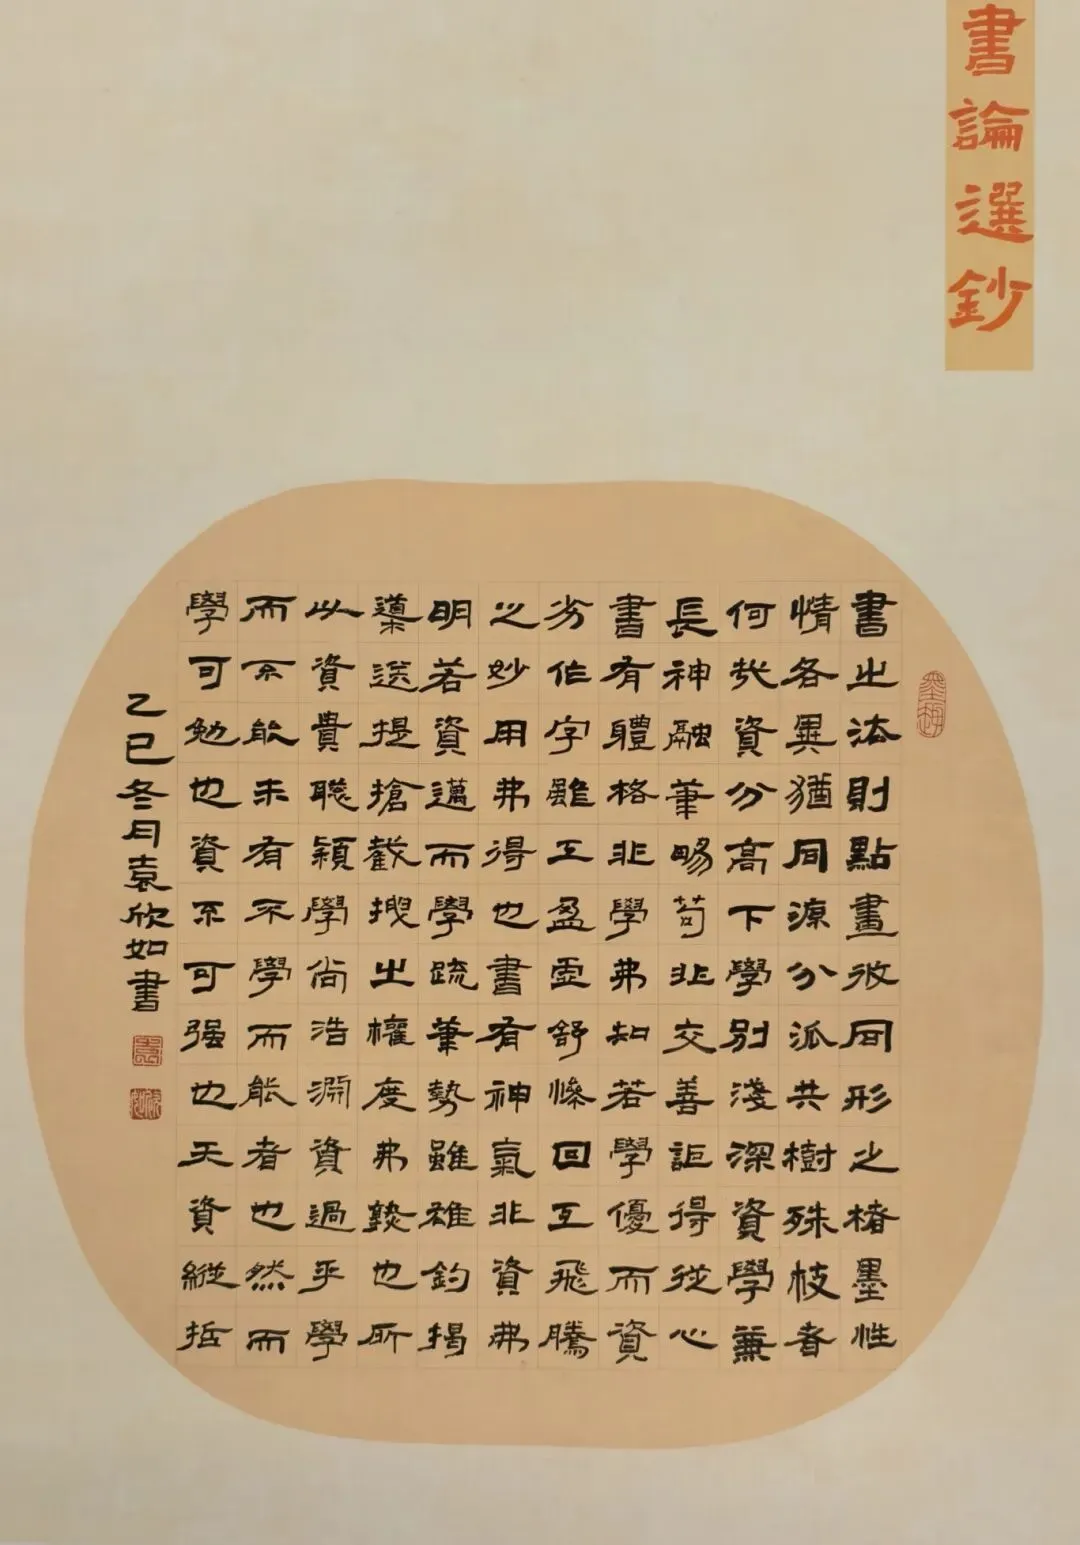 書論選鈔
書之法則點畫攸同形之楮墨性
情各異猶同源分派共樹殊枝者
何哉資分高下學別淺深資學兼
長神融筆暢苟非交善詎得從心
書有體格非學弗知若學優而資
劣作字雖工盈虛舒慘回互飛騰
之妙用弗得也書有神氣非資弗
明若資邁而學疏筆勢雖雄鉤揭
導送提搶截拽之權度弗熟也所
以資貴聰穎學尚浩淵資過乎學
而不能未有不學而能者也然而
學可勉也資不可强也天資縱
乙巳冬月袁欣如書